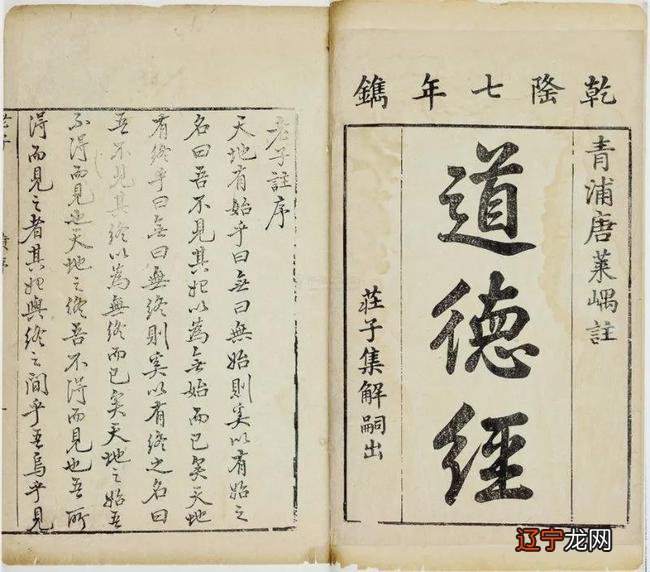 乾隆七年鐫
青浦唐萊峿註
道德經
莊子集解嗣出
老子註序
天地有始乎曰無曰無始則奚以有始之
名曰吾不見其始以為無始而已矣天地
有終乎曰無曰無終則奚以有終之名曰
吾不見其終以為無終而已矣天地之始吾
不得而見也天地之終吾不得而見也吾所
得而見之者其始與終之間乎吾烏乎見
辽宁龙网